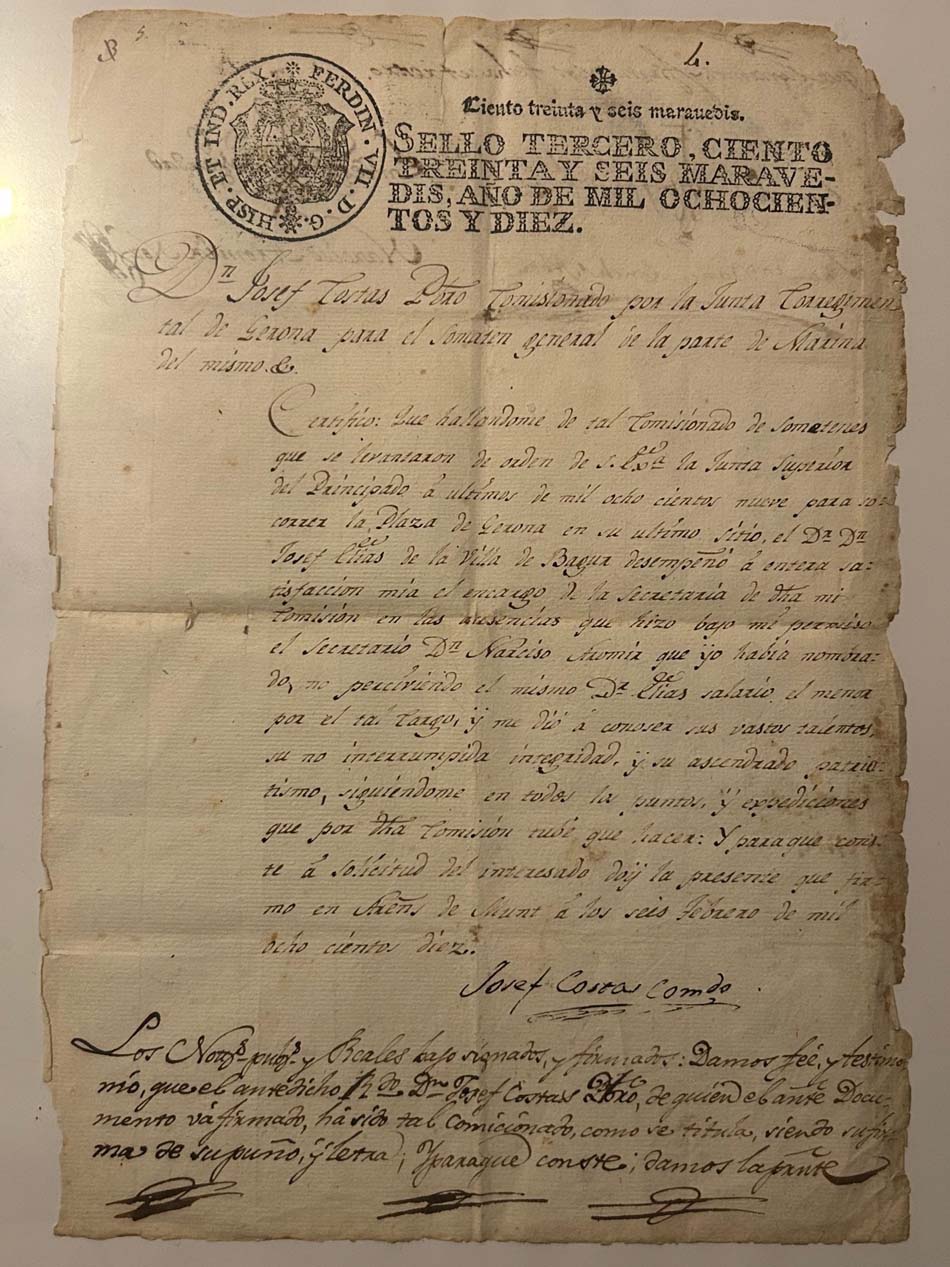 5.
4.
HISP. ET IND. REX FERDIN. VII. D. G.
Ciento treinta y seis maravedis.
SELLO TERCERO, CIENTO
TREINTA Y SEIS MARAVE-
DIS, AÑO DE MIL OCHOCIEN-
TOS Y DIEZ.
Dn Josef Costas Pbro Comisionado por la Junta Corregimen
tal de Gerona para el Somaten general de la parte de Marina
del mismo &.
Certifico: Que hallandome de tal Comisionado de Somatenes
que se levantaron de orden de S. Exca la Junta Superior
del Principado à ultimos de mil ocho cientos nueve para so-
correr la Plaza de Gerona en su ultimo sitio, el Dr. Dn
Josef Elias de la Villa de Bagur desempeñó à entera sa-
tisfaccion mia el encargo de la Secretaria de dha mi
Comisión en las ausencias que hizo bajo mi permiso
el Secretario Dn Narciso Aromir que yo habia nombra-
do, no percibiendo el mismo Dr. Elias salario el menor
por el tal Cargo, ÿ me dió à conoser sus vastos talentos,
su no interrumpida integridad, ÿ su ascendrado patrio-
tismo, siguiéndome en todos los puntos, ÿ expediciones
que por dha Comisión tubé que hacer: Y para que cons-
te à solicitud del interesado doÿ la presente que fir-
mo en Areñs de Munt à los seis Febrero de mil
ocho cientos diez.
Josef Costas Comdo.
Los Notrs. pubs. y Reales bajo signados, y firmados: Damos feé, y testimo
nio, que el antedicho Rdo. Dn Josef Costas Pbro, de quien el ante Docu-
mento vá firmado, há sido tal Comicionado, como se titula, siendo su fir-
ma de su puño, ÿ letra; Y paraque conste; damos la pñte